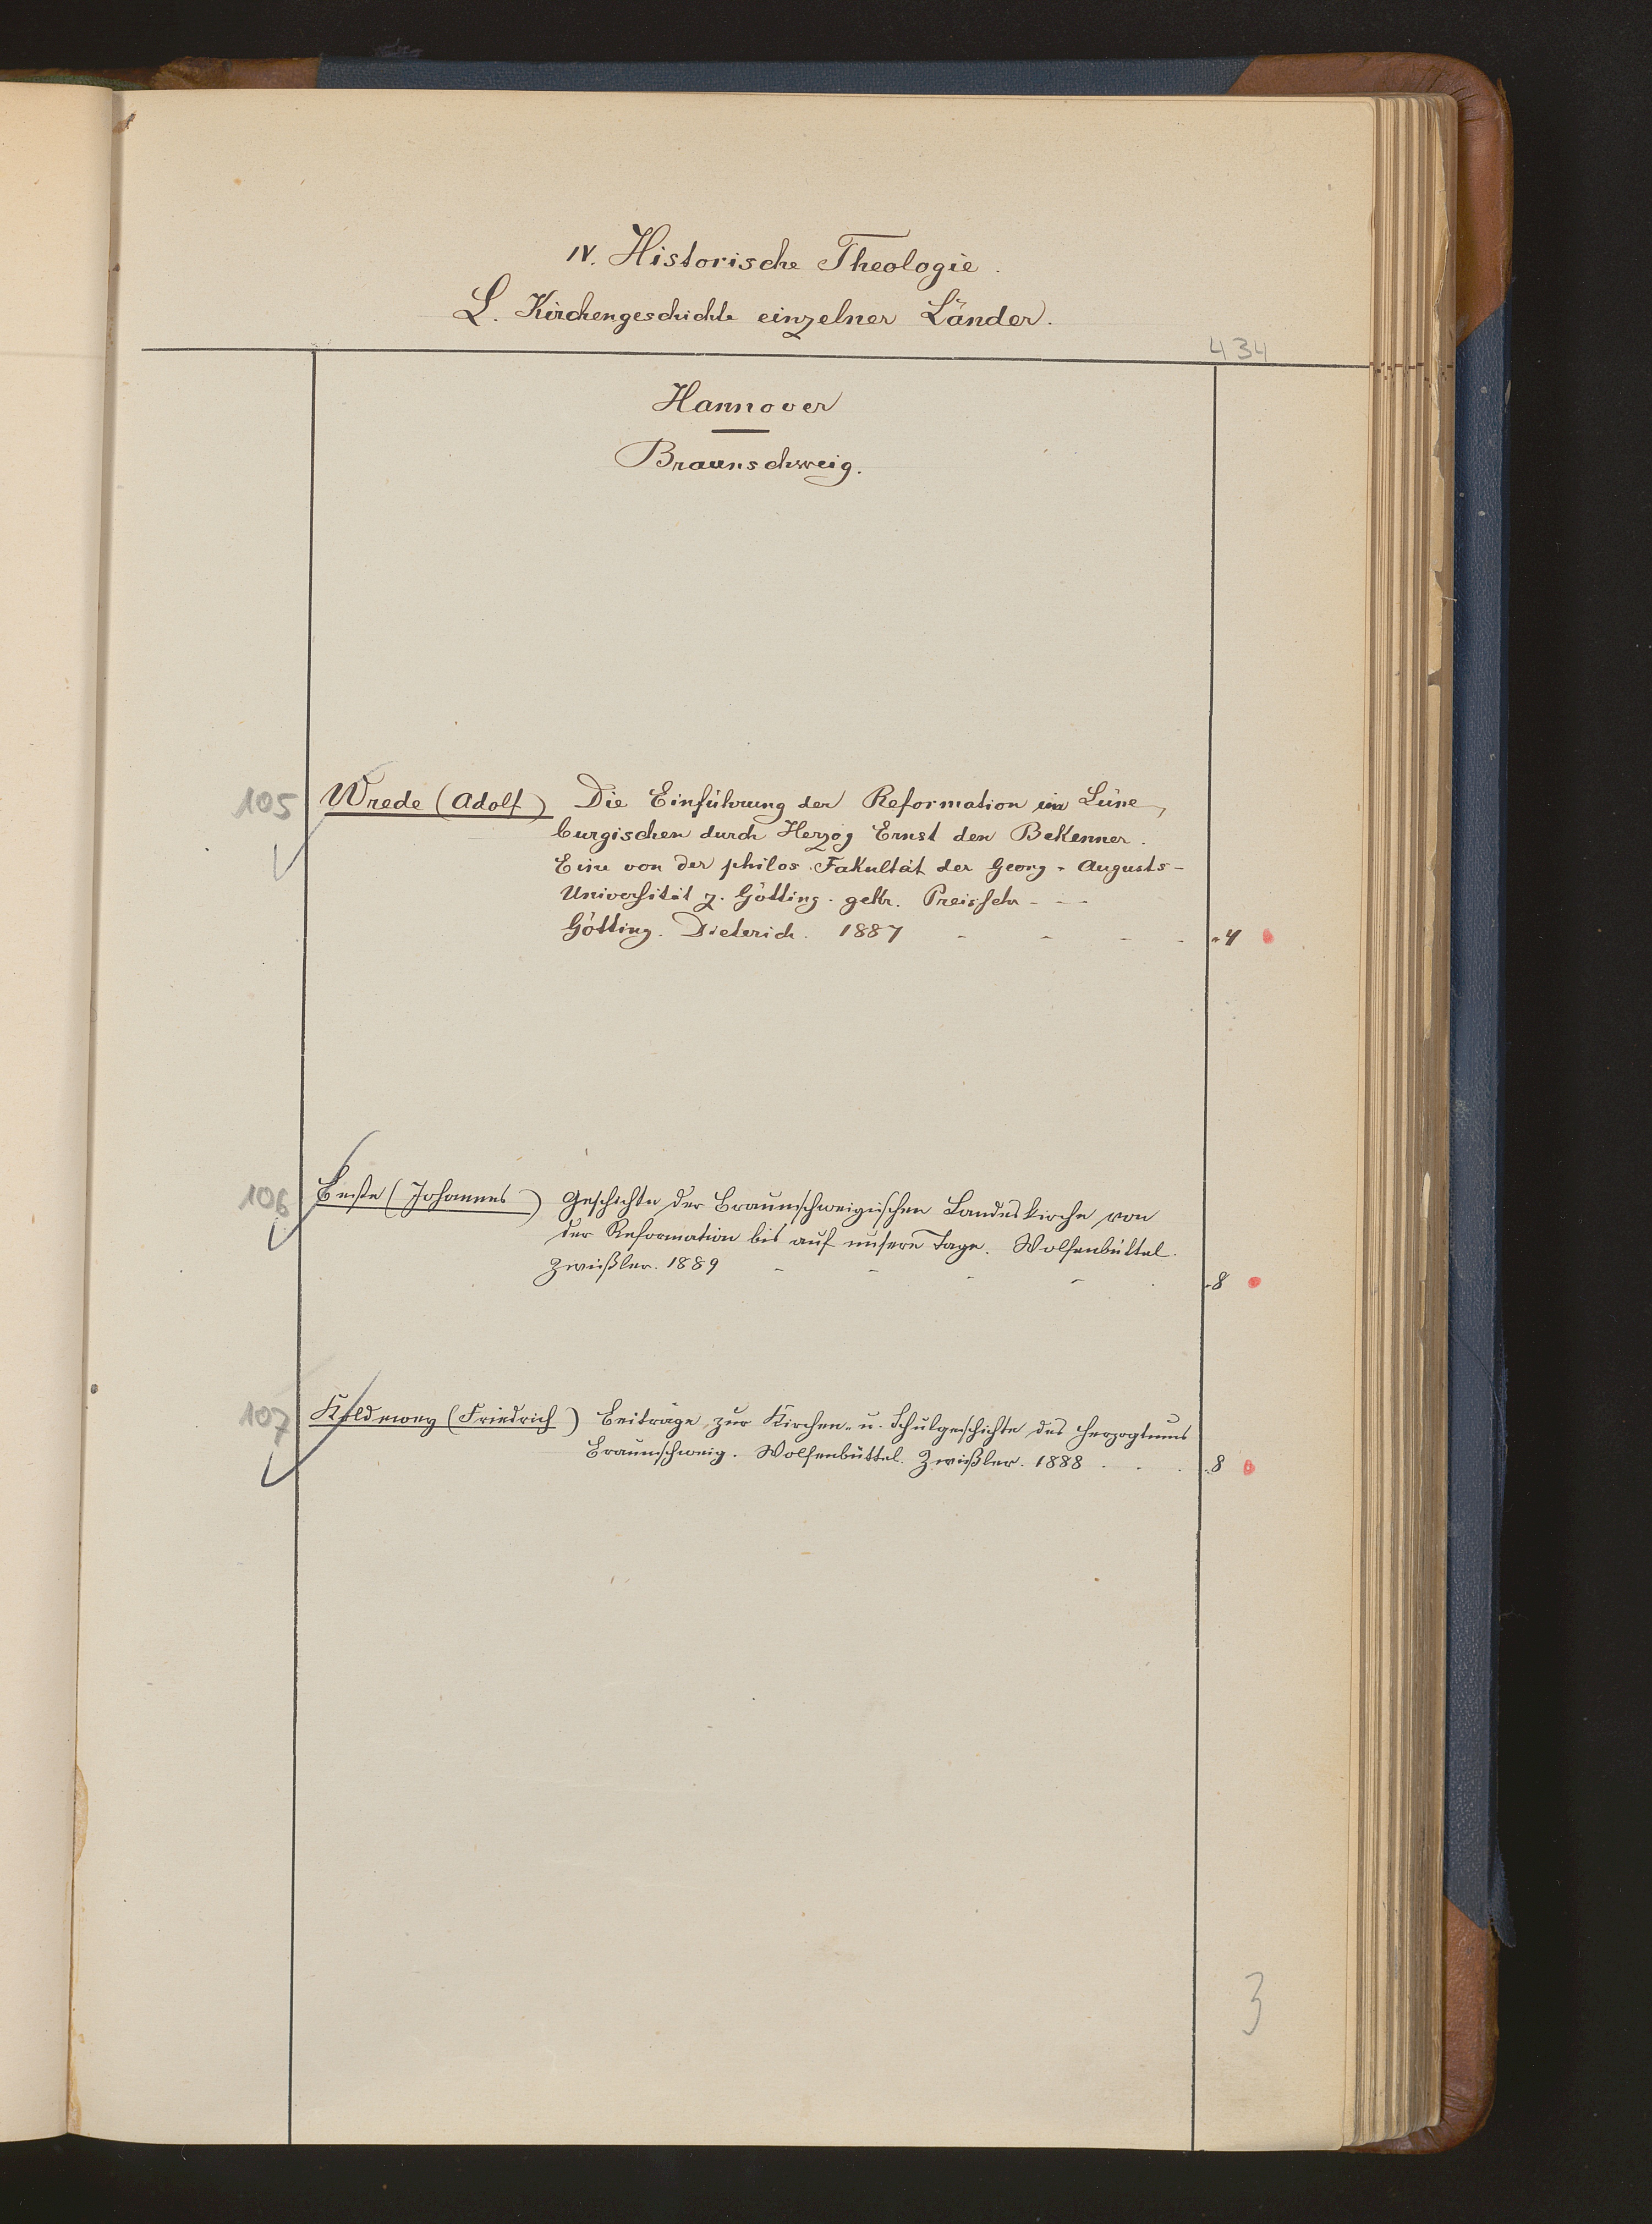 IV. Historische Theologie.
L. Kirchengeschichte einzelner Länder.
434
Hannover
Braunschweig.
105 Wrede (Adolf) Die Einführung der Reformation im Lüne-
burgischen durch Herzog Ernst den Bekenner.
Eine von der philos. Fakultät der Georg-Augusts-
Universität z. Götting. gekr. Preisschr - - -
Götting. Dieterich. 1887 - - - - "4
106 Beste (Johannes) Geschichte der Braunschweigischen Landeskirche von
der Reformation bis auf unsere Tage. Wolfenbüttel.
Zwißler. 1889 - - - - . "8
107 Koldewey (Friedrich) Beiträge zur Kirchen- u. Schulgeschichte des Herzogtums
Braunschweig. Wolfenbüttel. Zwißler. 1888 . . . "8
3